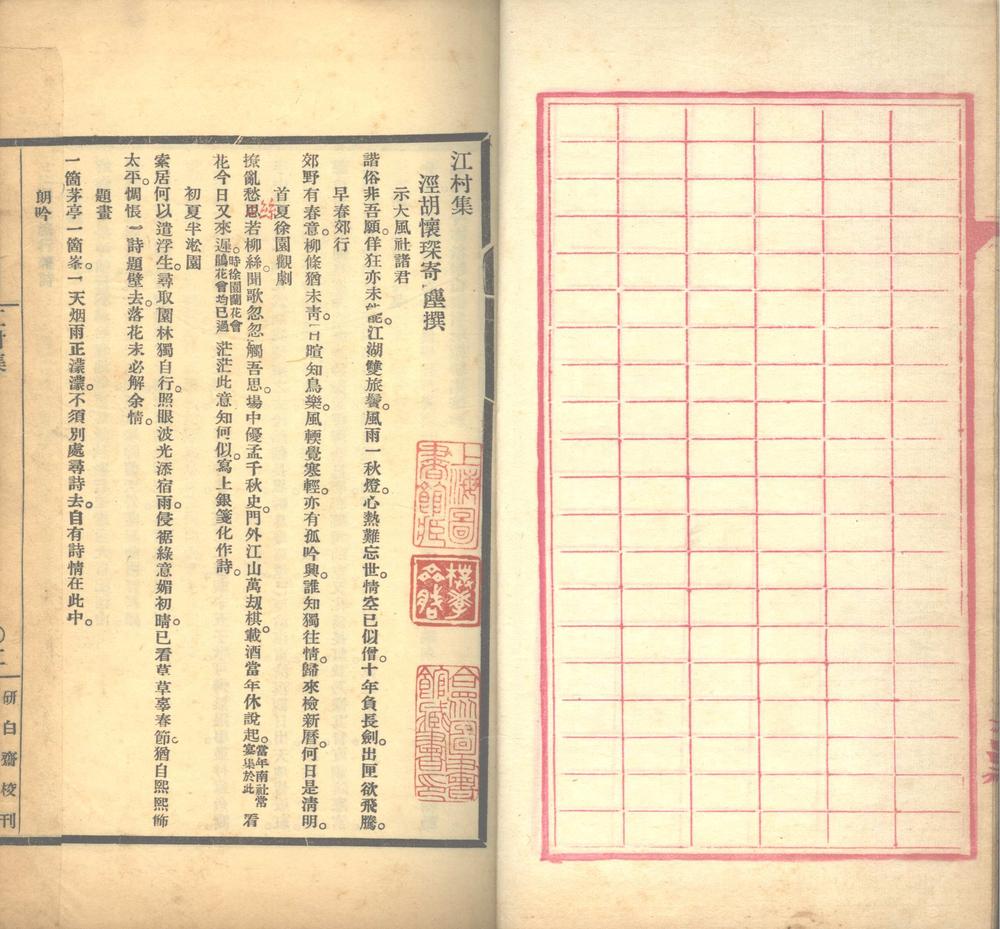 江村集
涇胡懷琛寄塵撰
示大風社諸君
諧俗非吾願。佯狂亦未能。江湖雙旅鬢。風雨一秋燈。心熱難忘世。情空已似僧。十年負長劍。出匣欲飛騰。
早春郊行
郊野有春意。柳條猶未靑。日暄知鳥樂。風輭覺寒輕。亦有孤吟興。誰知獨往情。歸來檢新曆。何日是淸明。
首夏徐園觀劇
撩亂愁思若柳絲。聞歌忽忽觸吾思。場中優孟千秋史。門外江山萬刼棋。載酒當年休說起。當年南社常宴集於此看
絲
花今日又來遲。時徐園蘭花會鵑花會均已過茫茫此意知何似。寫上銀箋化作詩。
初夏半淞園
索居何以遣浮生。尋取園林獨自行。照眼波光添宿雨。侵裾綠意媚初晴。已看草草辜春節。猶自熙熙飾
太平。惆悵一詩題壁去。落花未必解余情。
題畫
一箇茅亭一箇峯。一天烟雨正濛濛。不須別處尋詩去。自有詩情在此中。
朗吟
研白齋校刊
上海圖書館藏